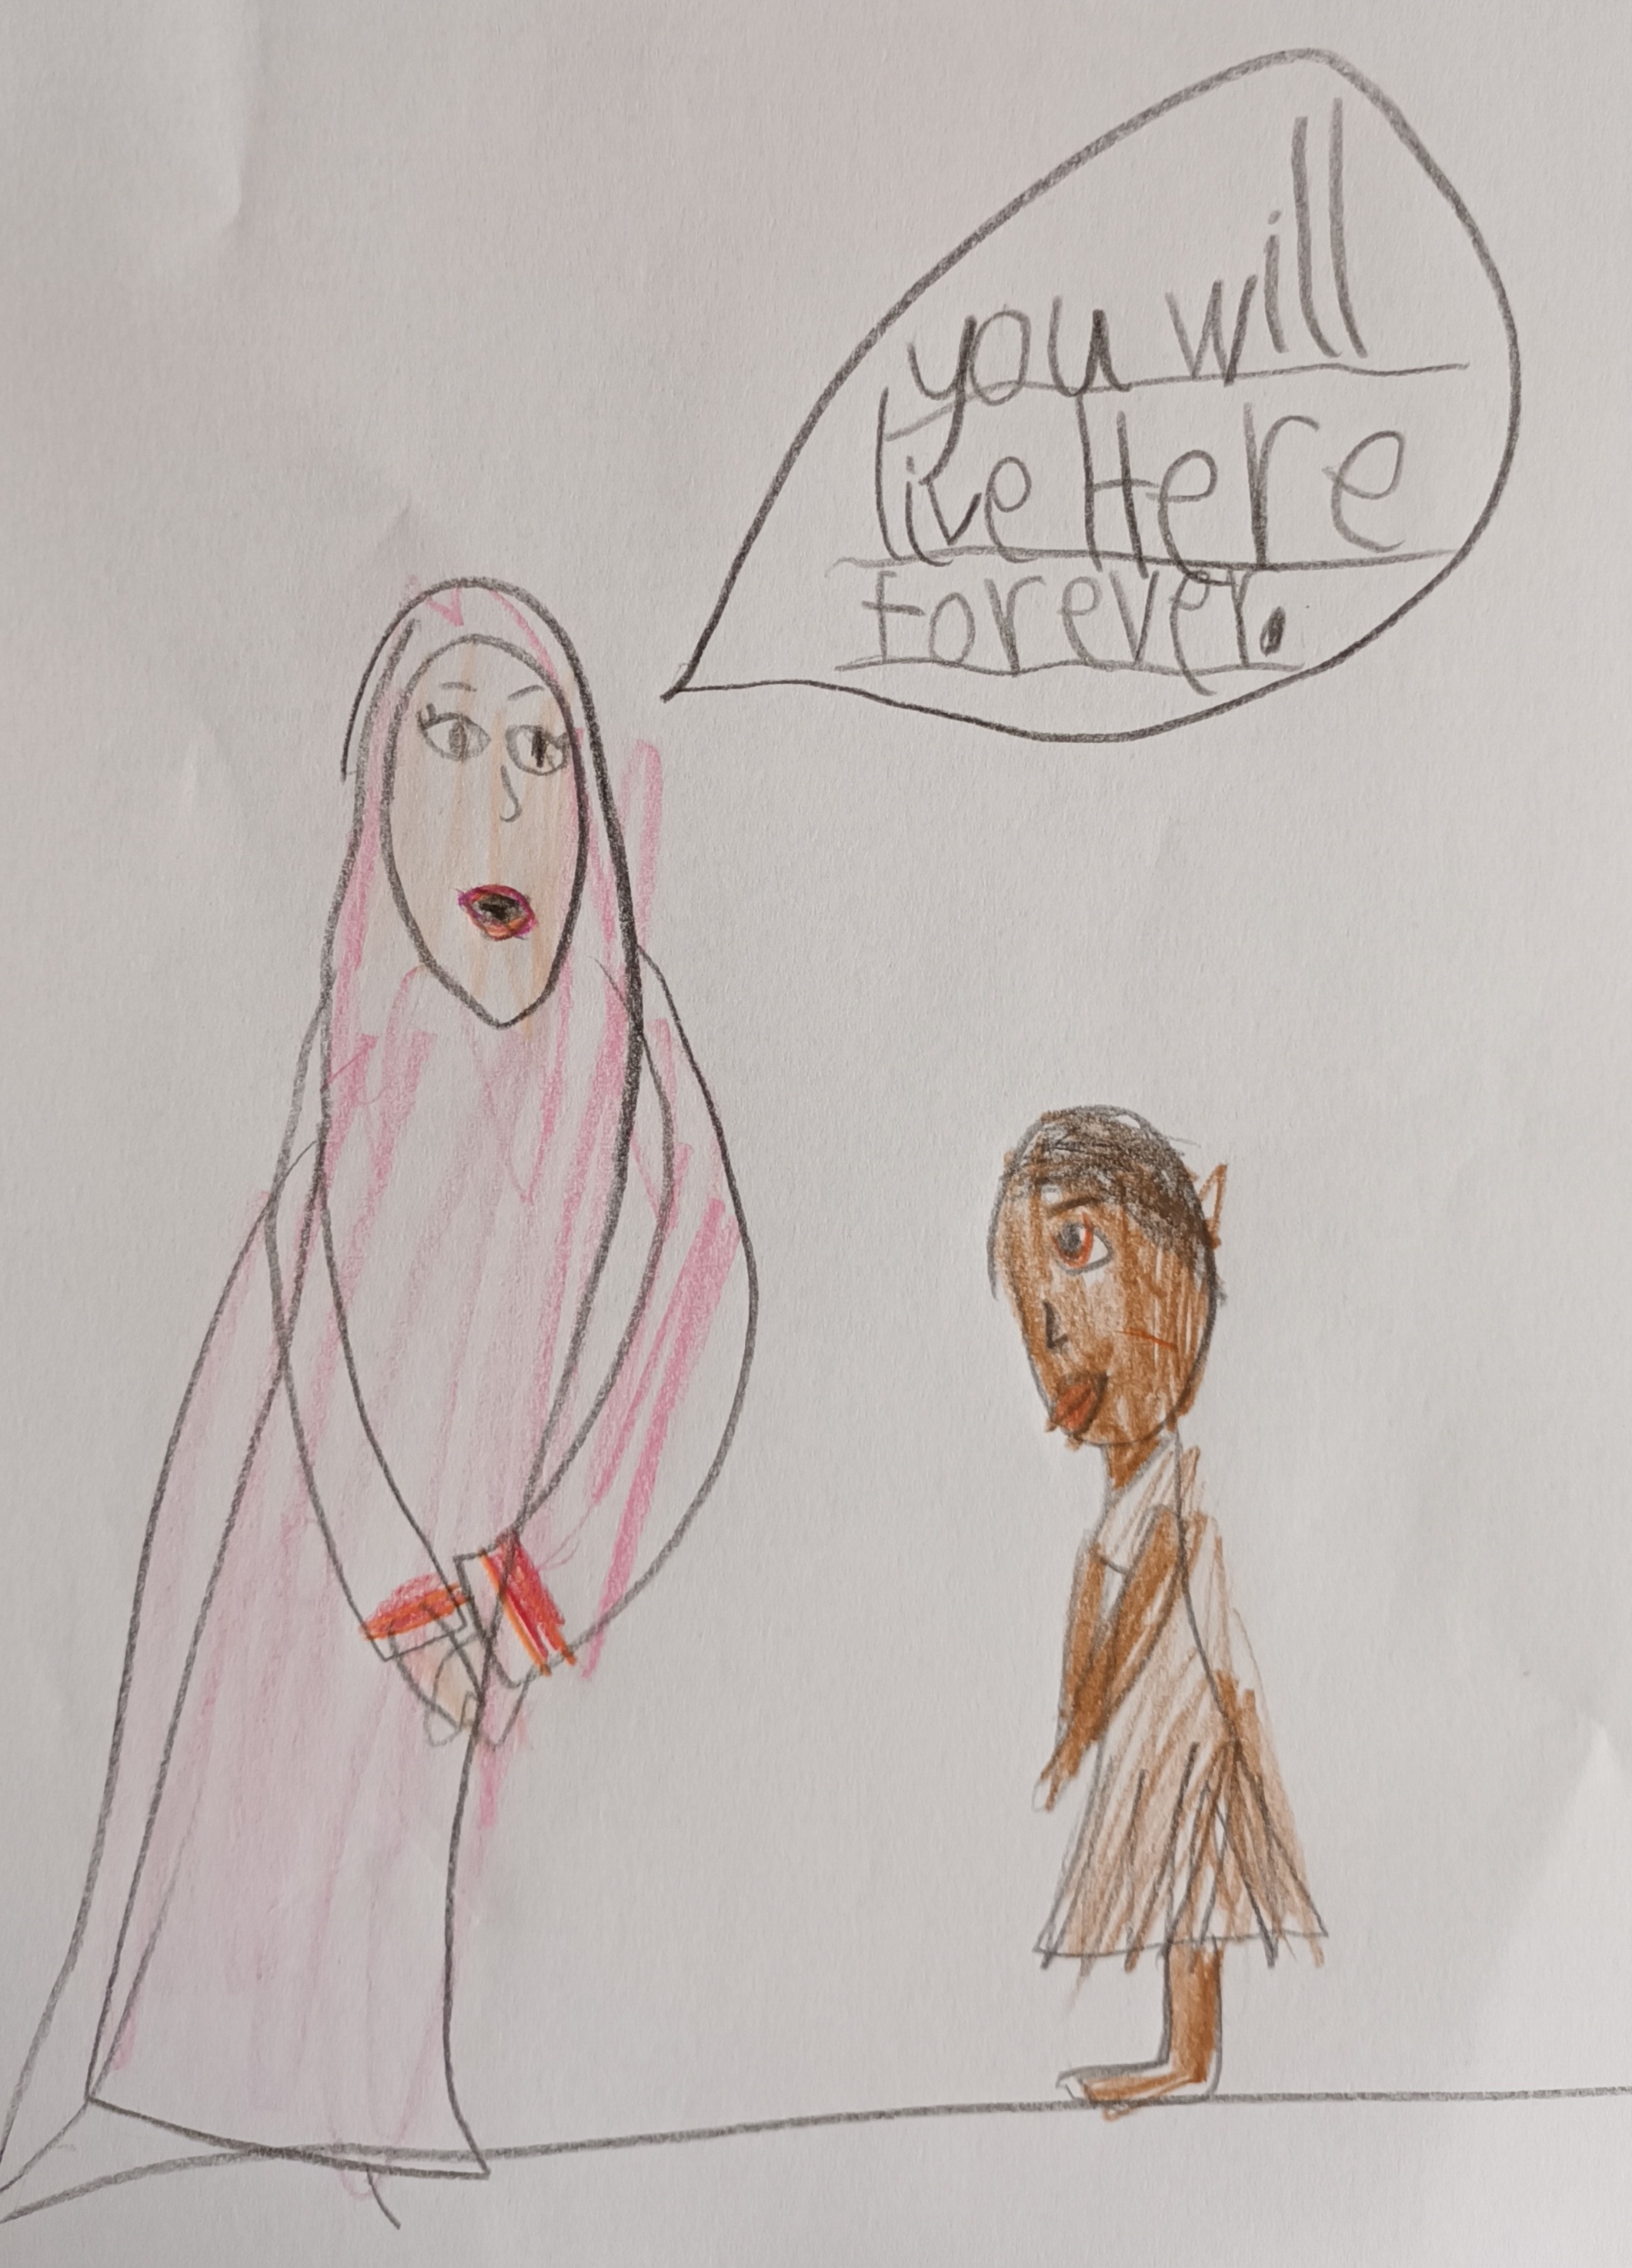 you will
live Here
Forever.